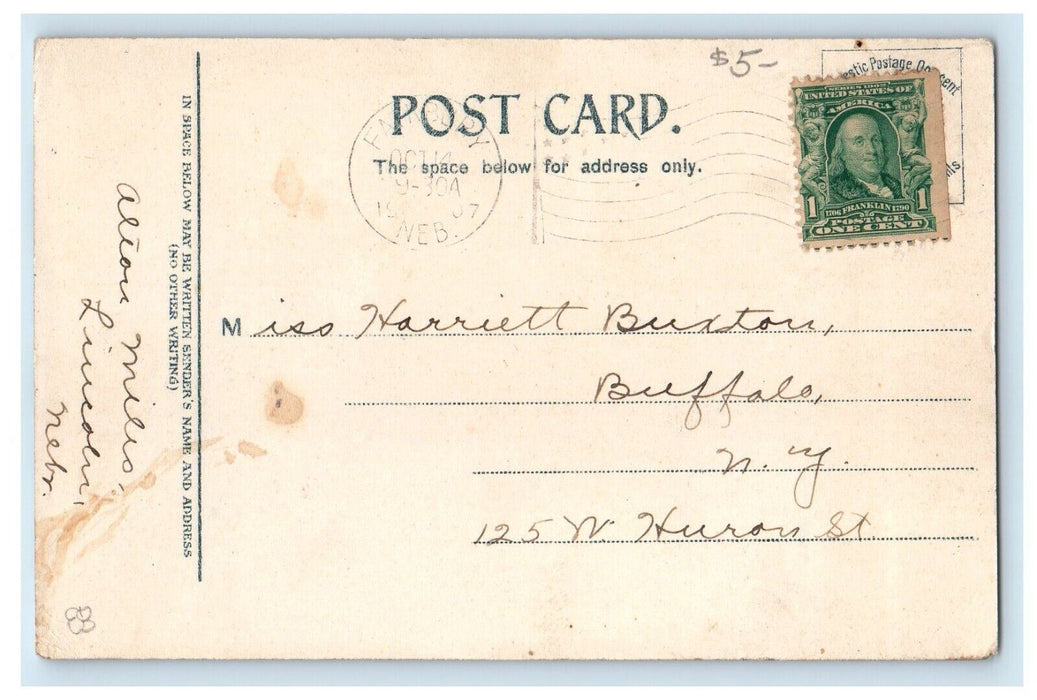 $5-
POST CARD.
The space below for address only.
OCT 14
9-30A
1907
NEB.
SERIES 1902
UNITED STATES OF
AMERICA
1 1
1706 FRANKLIN 1790
POSTAGE
ONE CENT
Miss Harriett Buxton,
Buffalo,
N. Y.
125 W. Huron St.
IN SPACE BELOW MAY BE WRITTEN SENDER'S NAME AND ADDRESS
(NO OTHER WRITING)
Alton Miles.
Lincoln,
Nebr.